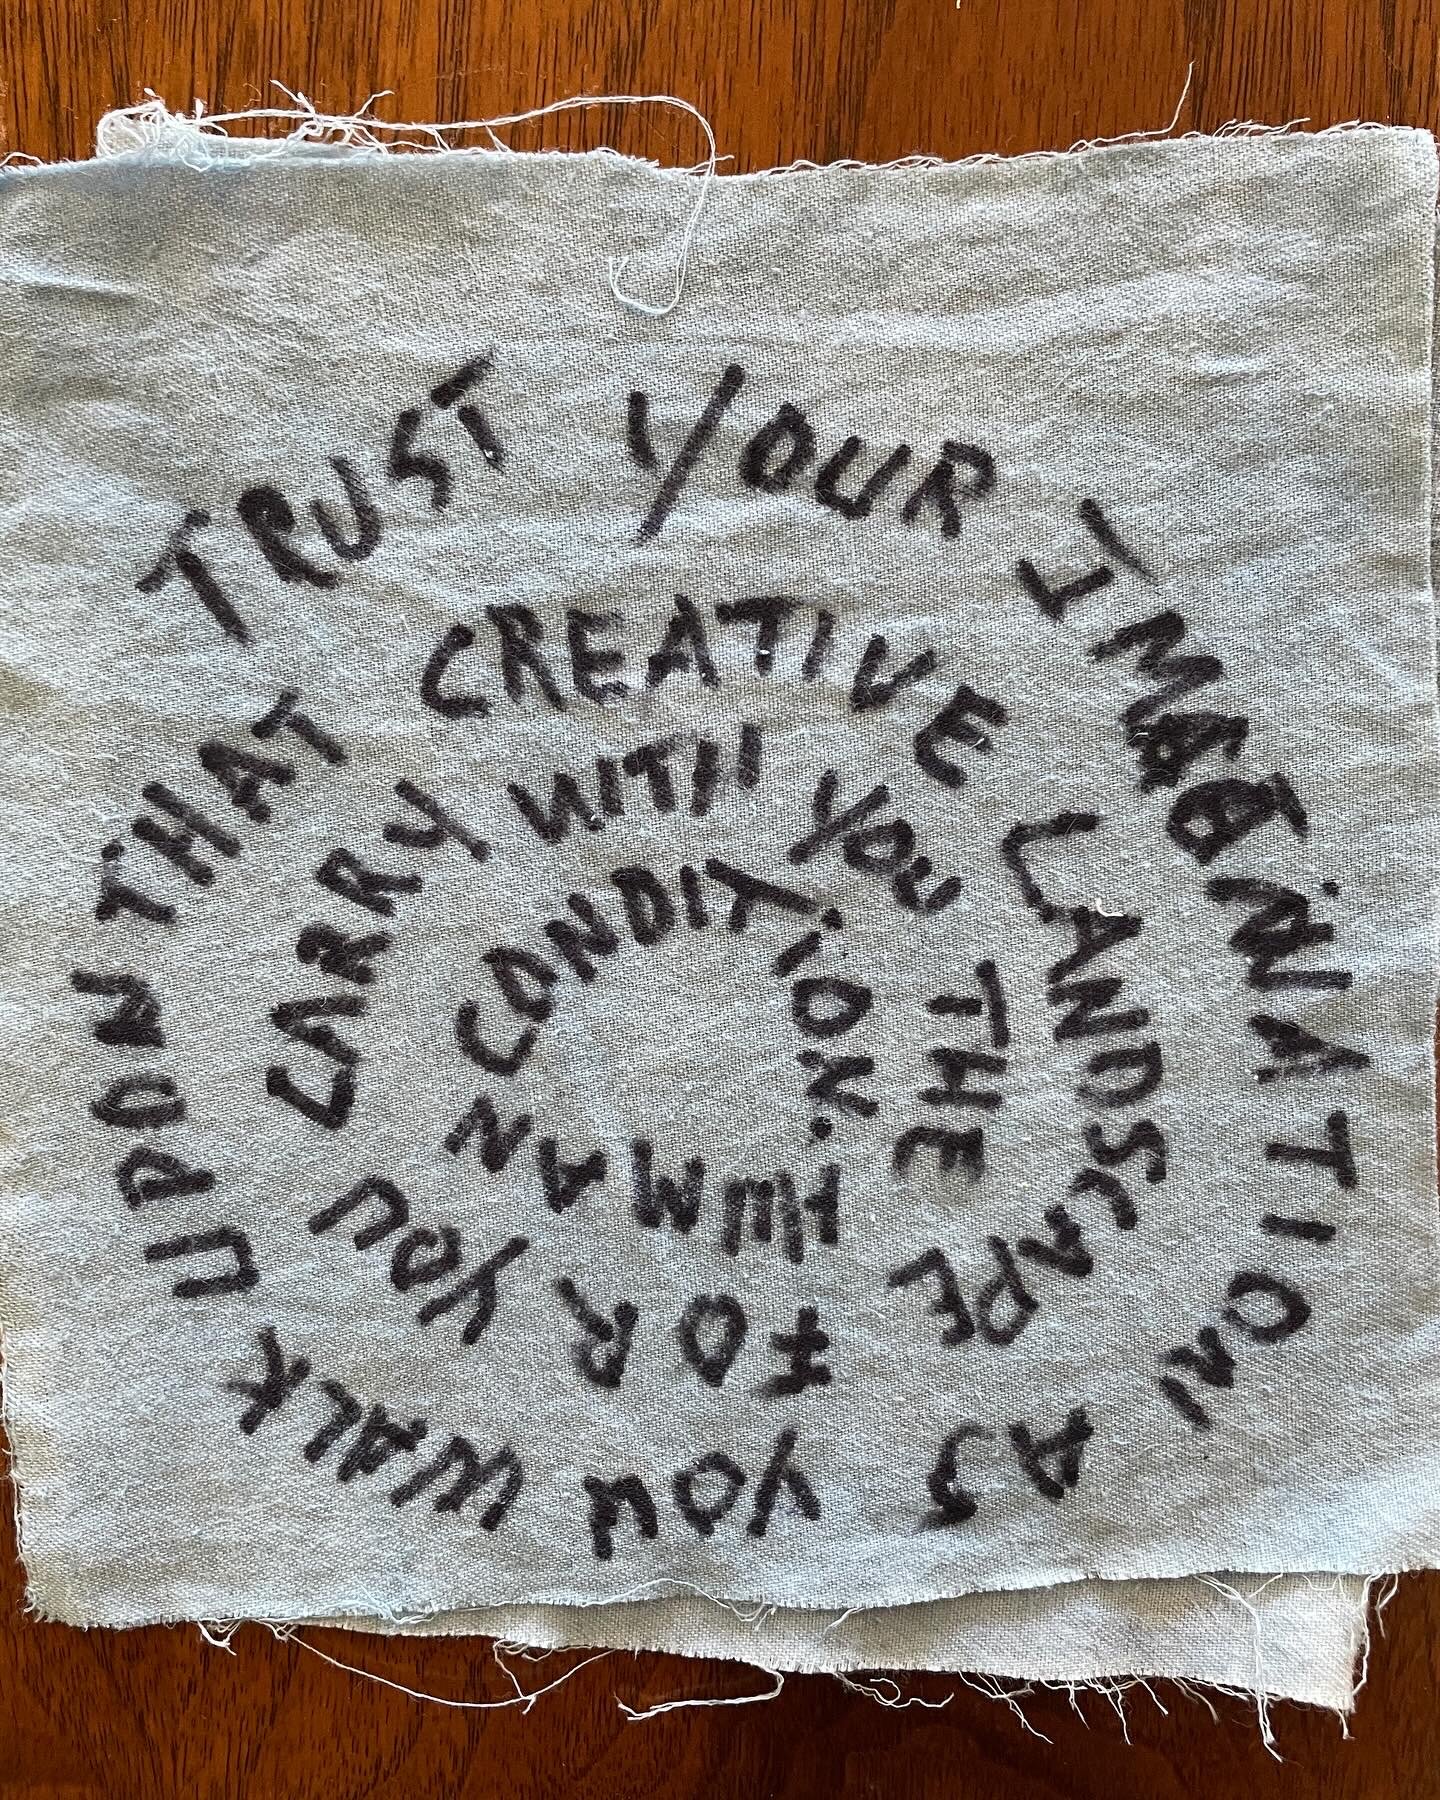 TRUST YOUR IMAGINATION, AS YOU WALK UPON THAT CREATIVE LANDSCAPE FOR YOU CARRY WITH YOU THE HUMAN CONDITION.